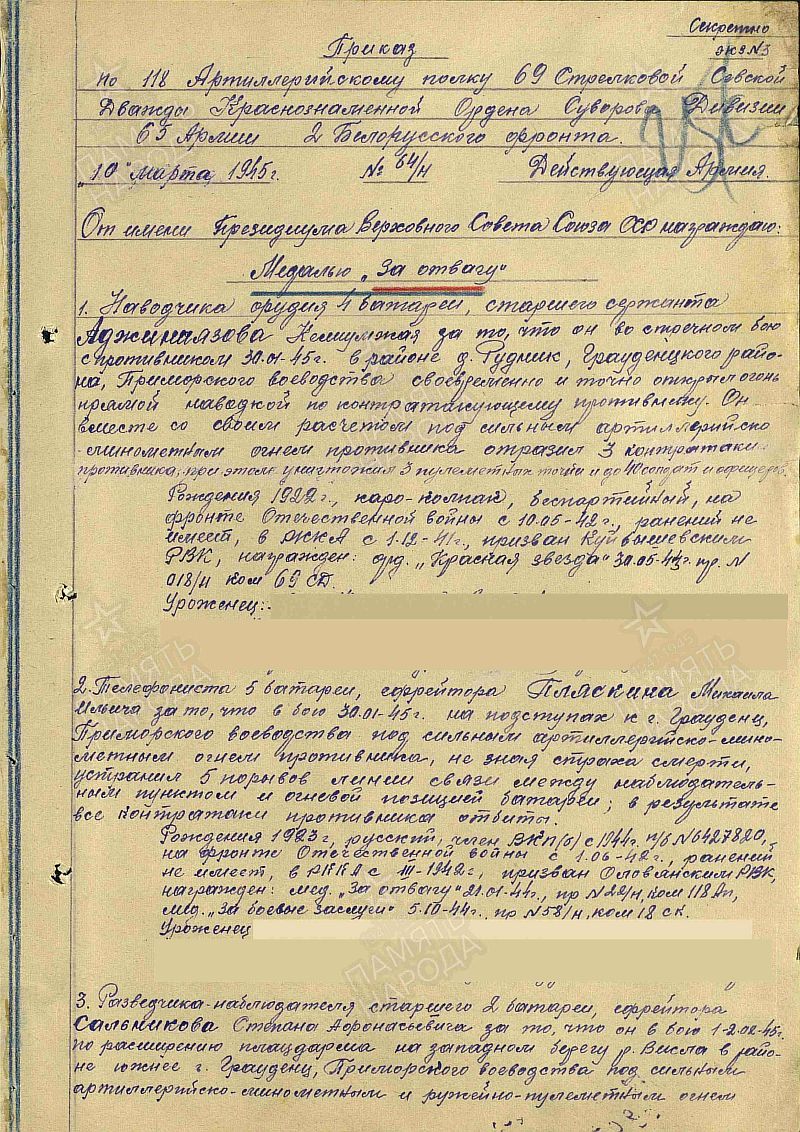 Секретно
экз №3
Приказ
по 118 Артиллерийскому полку 69 Стрелковой Севской
Дважды Краснознаменной Ордена Суворова Дивизии
65 Армии 2 Белорусского фронта.
"10" марта 1945г. № 64/н Действующая Армия.
От имени Президиума Верховного Совета Союза ССР награждаю:
Медалью "За отвагу"
1. Наводчика орудия 4 батареи, старшего сержанта
Аджиниязова за то, что он во встречном бою
с противником 30.01-45г. в районе д. Рудник, Грауденцкого райо-
на, Приморского воеводства своевременно и точно открыл огонь
прямой наводкой по контратакующему противнику. Он
вместе со своим расчетом под сильным артиллерийско
-минометным огнем противника отразил 3 контратаки
противника, при этом уничтожил 3 пулеметных точки и до 40 солдат и офицеров.
Рождения 1922г., каро-колпак, беспартийный, на
фронте Отечественной войны с 10.05-42г., ранений не
имеет, в РККА с 1.12-41г., призван Куйбышевским
РВК, награжден: орд. "Красная звезда" пр. N
018/н ком 69 СД.
Уроженец:
2. Телефониста 5 батареи, ефрейтора Пляскина Михаила
Ильича за то, что в бою 30.01-45г. на подступах к г. Грауденц,
Приморского воеводства под сильным артиллерийско-мино-
метным огнем противника, не зная страха смерти,
устранил 5 порывов линии связи между наблюдатель-
ным пунктом и огневой позицией батареи; в результате
все контратаки противника отбиты.
Рождения 1923г, русский, член ВКП(б) с 1944г. п/б N6427820,
на фронте Отечественной войны с 1.06-42г., ранений
не имеет, в РККА с III-1942г., призван Оловянским РВК,
награжден: мед. "За отвагу" 21.01-44г., пр N22/н, ком 118 Ап,
мед. "За боевые заслуги" 5.10-44г., пр N58/н, ком 18 ск.
Уроженец
3. Разведчика-наблюдателя старшего 2 батареи, ефрейтора
Сальникова Степана Афонасьевича за то, что он в бою 1-2.02-45г.
по расширению плацдарма на западном берегу р. Висла в райо-
не южнее г. Грауденц, Приморского воеводства под сильным
артиллерийско-минометным и ружейно-пулеметным огнем
ПАМЯТЬ
НАРОДА